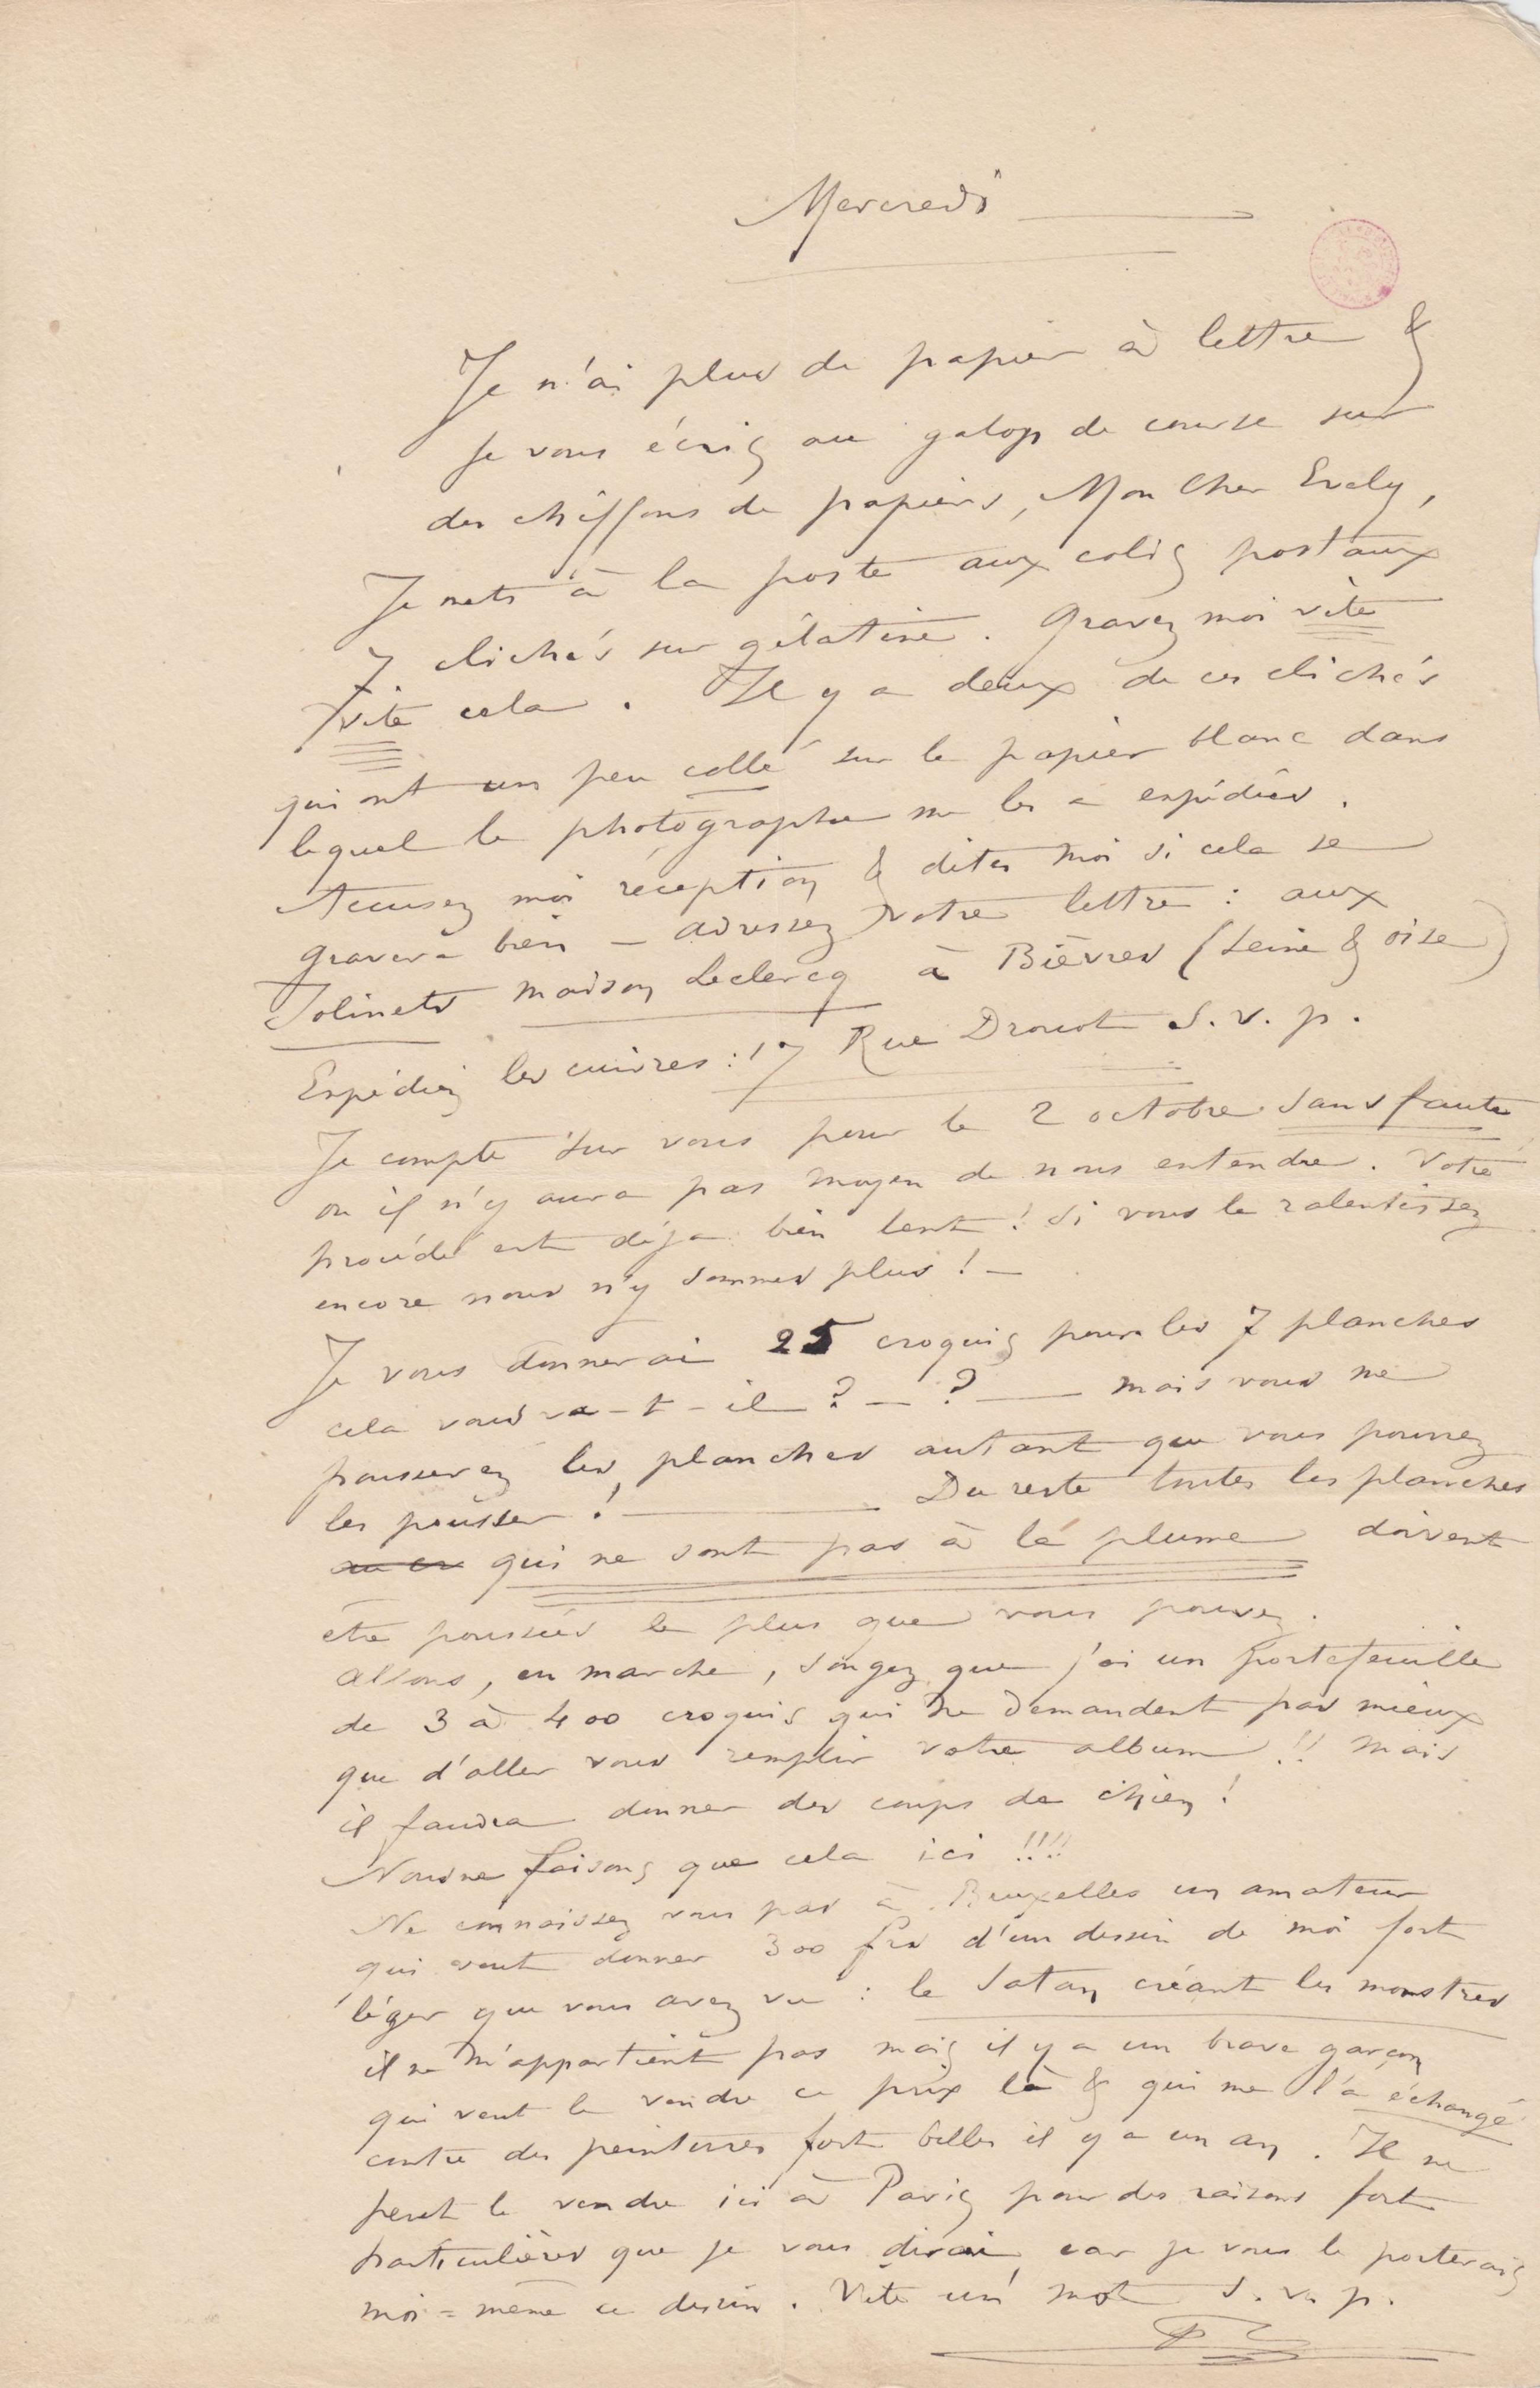 Mercredi
Je n'ai plus de papier à lettre &
je vous écris au galop de course sur
des chiffons de papiers, Mon Cher Evely,
Je mets à la poste aux colis postaux
7 clichés sur gélatine. Gravez moi vite
vite cela. Il y a deux de ces clichés
qui ont un peu collé sur le papier blanc dans
lequel le photographe me les a expédiés.
Accusez moi réception & dites moi si cela se
gravera bien – adressez votre lettre : aux
Jolinets maison Leclercq à Bièvres (Seine & oise)
Expédiez les cuivres : 17 Rue Drouot S. v. p.
Je compte sur vous pour le 2 octobre sans faute
ou il n'y aura pas moyen de nous entendre. Votre
procédé est déjà bien lent ! Si vous le ralentissez
encore nous n'y sommes plus ! –
Je vous donnerai 25 croquis pour les 7 planches
cela vous va-t-il ? – ? — mais vous me
pousserez les planches autant que vous pourrez
les pousser ! — Du reste toutes les planches
qui ne sont pas à la plume doivent
être poussées le plus que vous pouvez.
allons, en marche, songez que j'ai un portefeuille
de 3 à 400 croquis qui ne demandent pas mieux
que d'aller vous remplir votre album !! Mais
il faudra donner des coups de chien !
Nous ne faisons que cela ici !!!!
Ne connaissez vous pas à Bruxelles un amateur
qui veut donner 300 frs d'un dessin de moi fort
léger que vous avez vu : le Satan créant les monstres
il ne m'appartient pas mais il y a un brave garçon
qui veut le vendre ce prix là & qui me l'a échangé
contre des peintures fort belles il y a un an. Il ne
peut le vendre ici à Paris pour des raisons fort
particulières que je vous dirai car je vous le porterais
moi=même ce dessin. Vite un mot S. v. p.